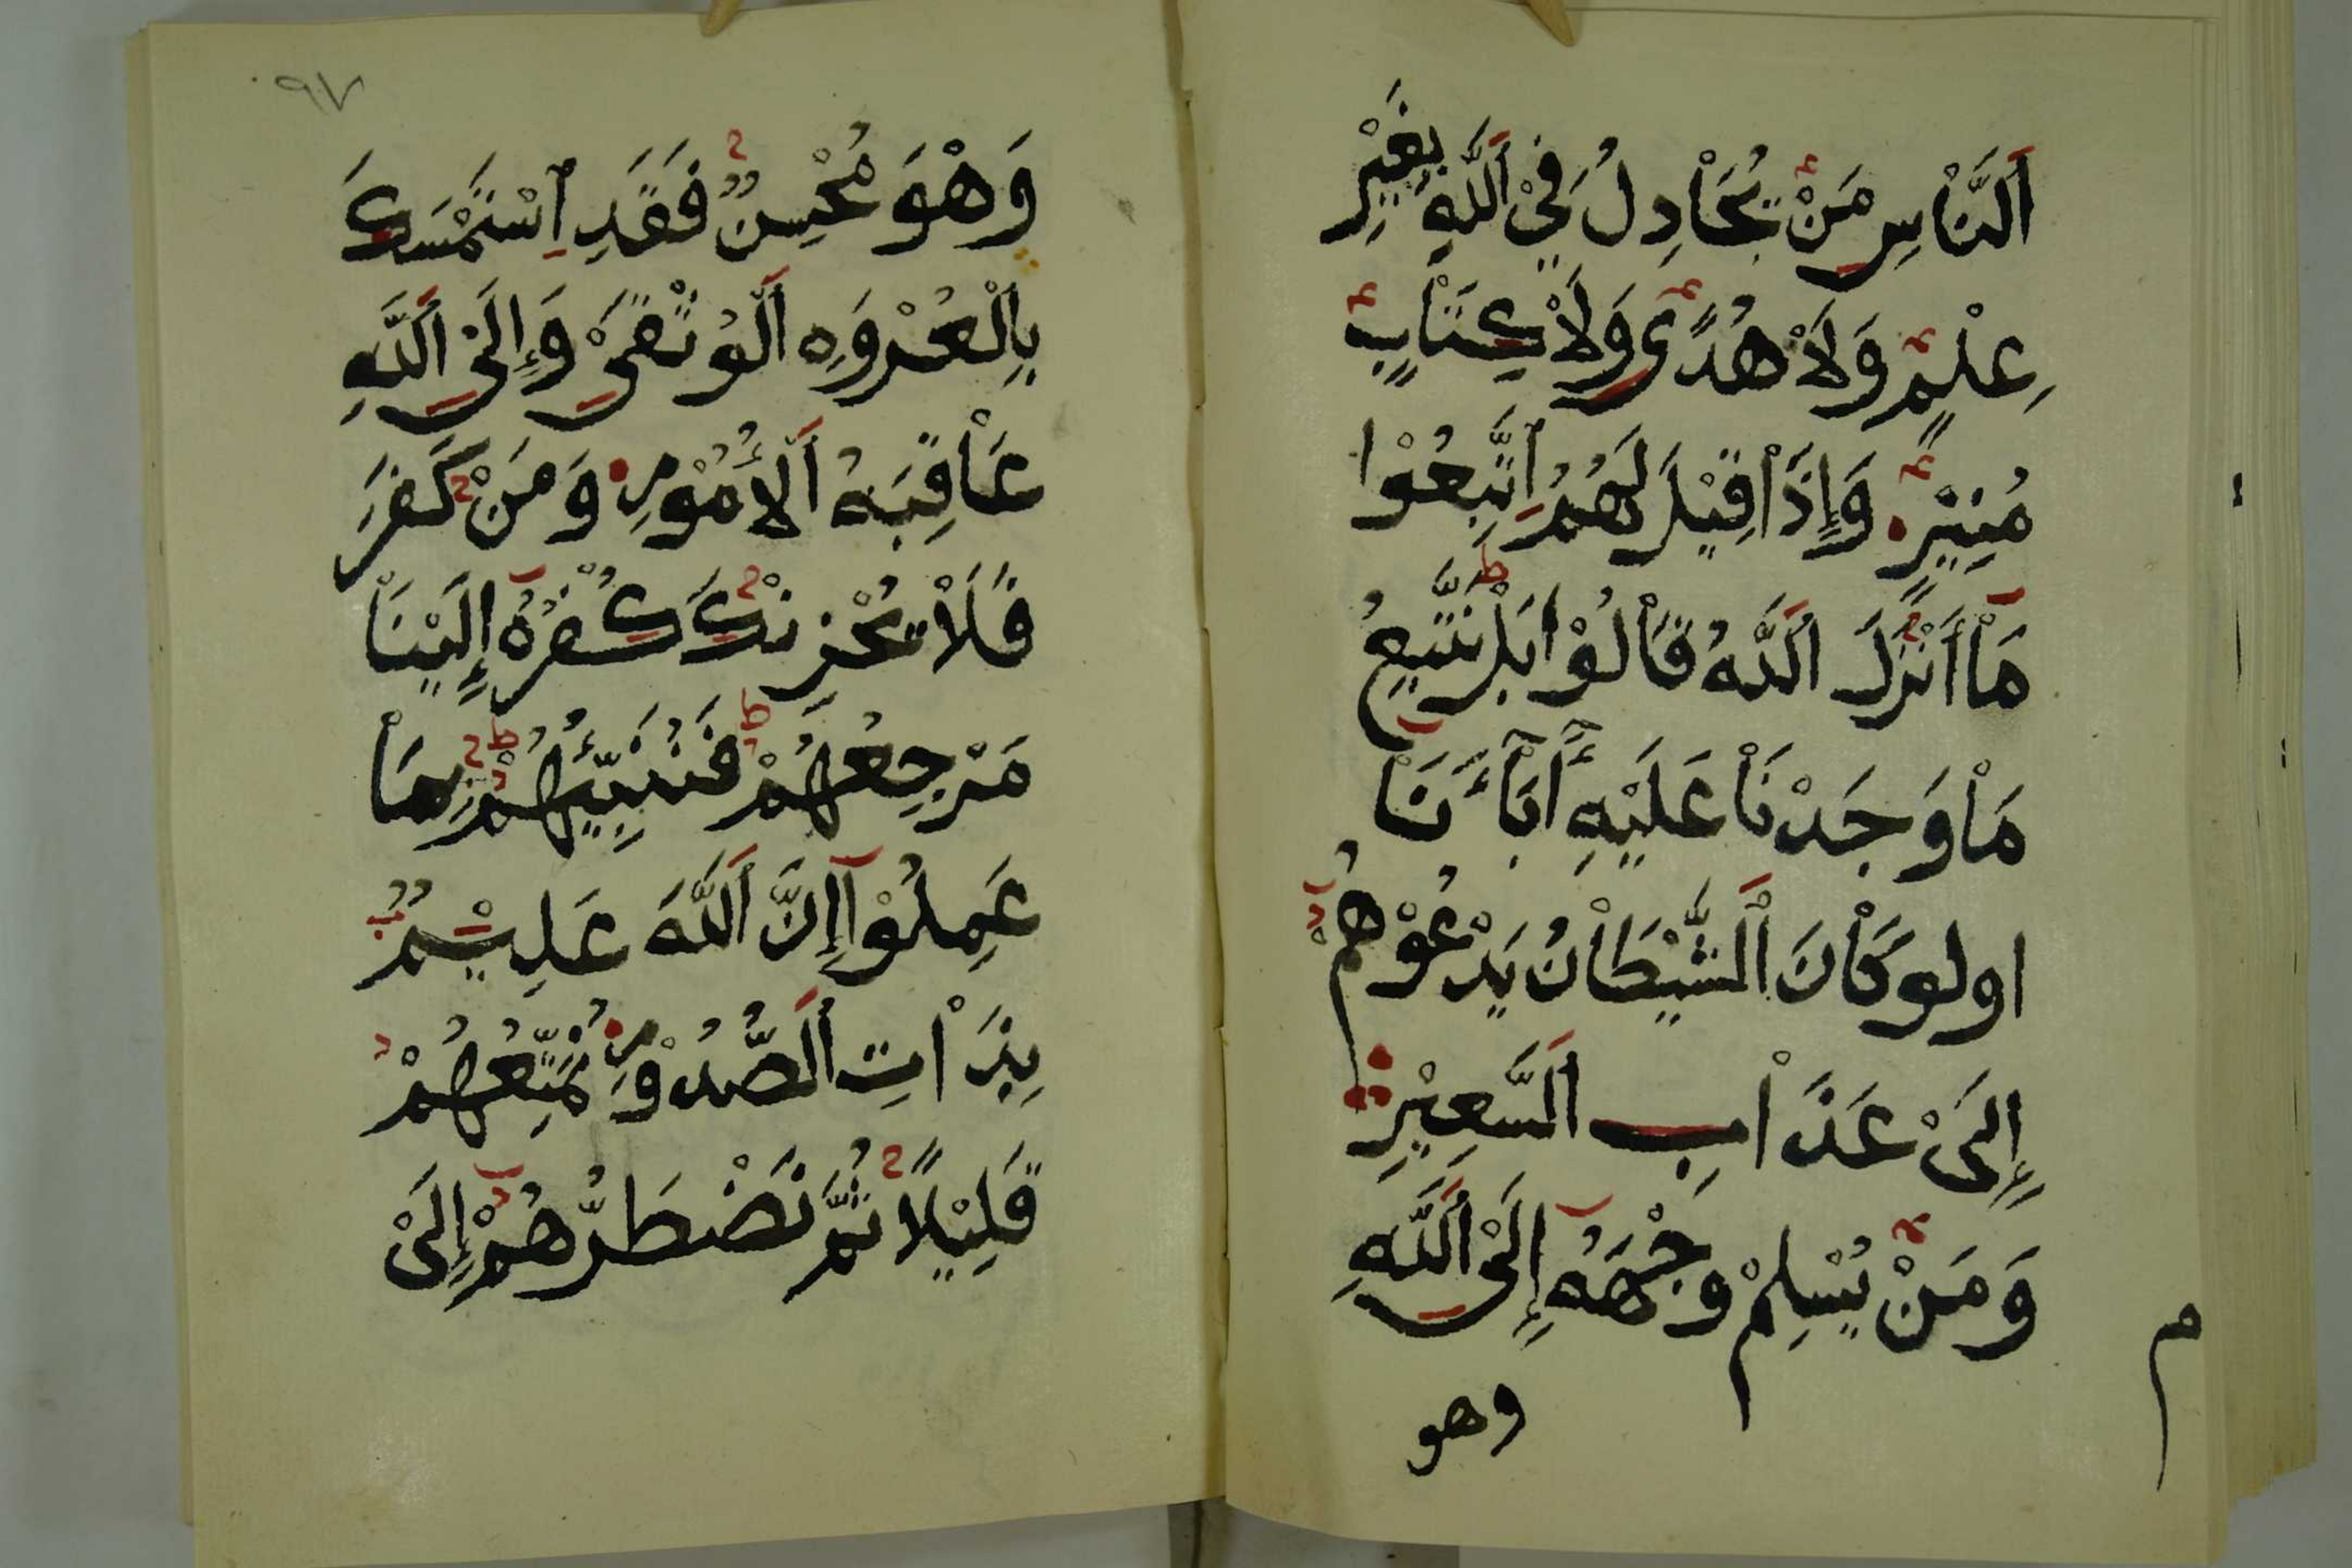 اَلنَّاْسِ مَنْ يُّجَاْدِلُ فِيْ اَللَّهِ بِغَيْرِ
عِلْمٍ وَلَاْ هُدًى وَلَاْ كِتَاْبٍ
مُنِيْرٍ وَإِذَاْ قِيْلَ لَهُمُ اِتَّبِعُوْا
مَاْ أَنْزَلَ اَللَّهُ قَاْلُوْا بَلْ نَتَّبِعُ
مَاْ وَجَدْنَاْ عَلَيْهِ أَبَاْءَنَاْ
اولو كَاْنَ اَلشَّيْطَاْنُ يَدْعُوْهُمْ
إِلَىْ عَذَاْبِ اَلسَّعِيْرِ
وَمَنْ يُسْلِمْ وَجْهَهُ إِلَىْ اَللَّهِ
وهو
م
٩٧
وَهْوَ مُحْسِنٌ فَقَدِ اِسْتَمْسَكَ
بِالْعُرْوَهِ اَلْوُثْقَىْ وَإِلَىْ اَللَّهِ
عَاْقِبَهُ اَلْأُمُوْرِ وَمَنْ كَفَرَ
فَلَاْ يُحْزِنْكَ كُفْرُهُ إِلَيْنَاْ
مَرْجِعُهُمْ فَنُنَبِّئُهُمْ بِمَاْ
عَمِلُوْا إِنَّ اَللَّهَ عَلِيْمٌ
بِذَاْتِ اَلصُّدُوْرِ نُمَتِّعُهُمْ
قَلِيْلًا ثُمَّ نَضْطَرُّهُمْ إِلَىْ